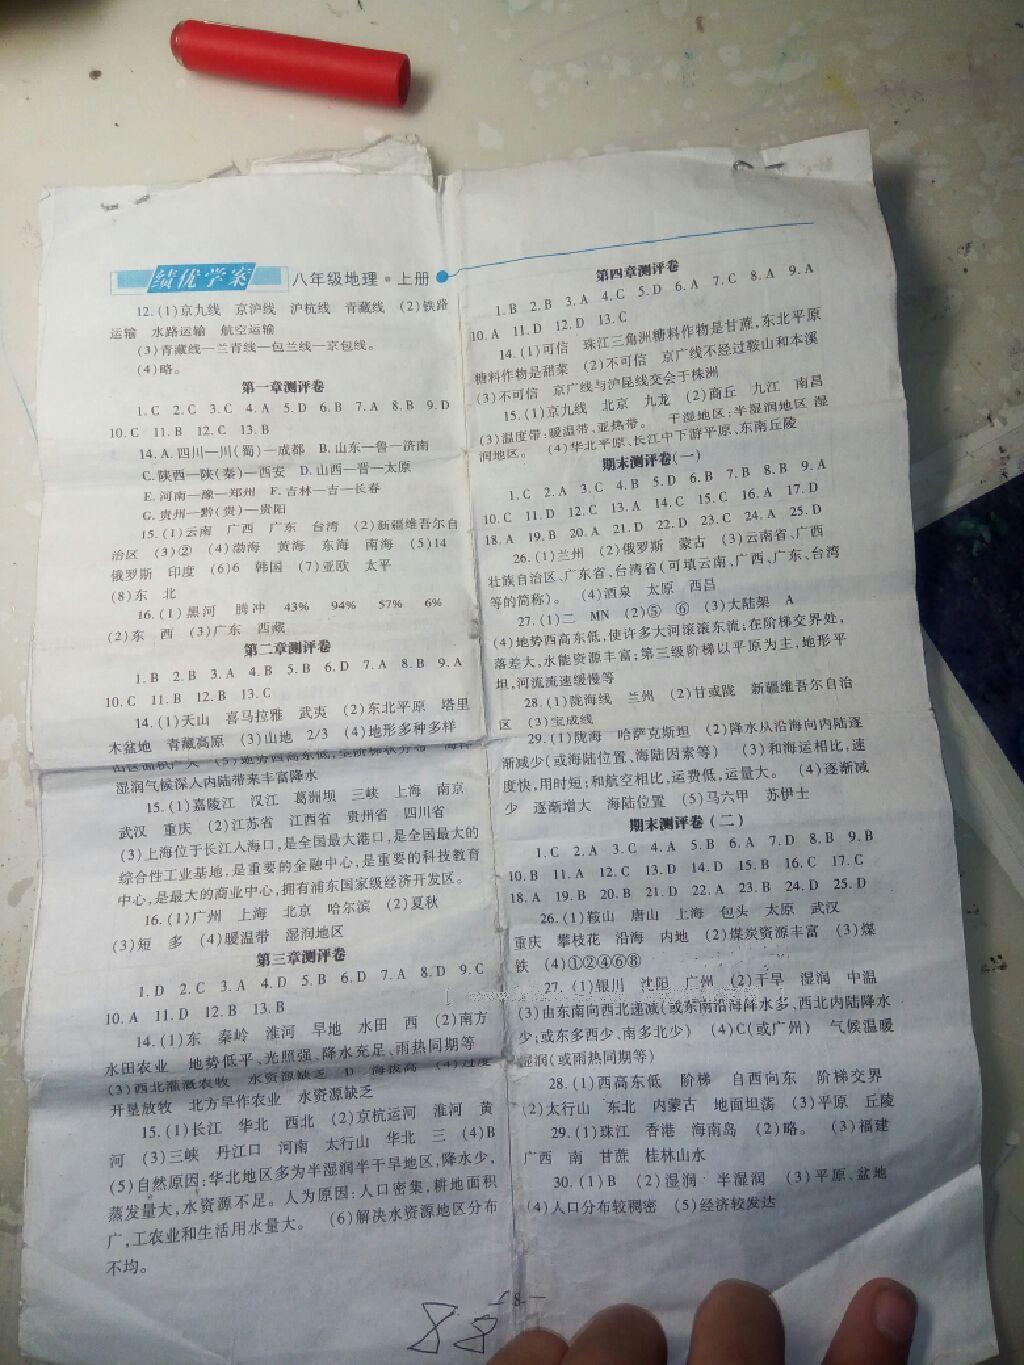 绩优学案 八年级地理·上册
12.(1)京九线 京沪线 沪杭线 青藏线 (2)铁路
运输 水路运输 航空运输
(3)青藏线—兰青线—包兰线—京包线。
(4)略。
第一章测评卷
1.C 2.C 3.C 4.A 5.D 6.B 7.A 8.B 9.D
10.C 11.B 12.C 13.B
14.A.四川—川(蜀)—成都 B.山东—鲁—济南
C.陕西—陕(秦)—西安 D.山西—晋—太原
E.河南—豫—郑州 F.吉林—吉—长春
G.贵州—黔(贵)—贵阳
15.(1)云南 广西 广东 台湾 (2)新疆维吾尔自
治区 (3)② (4)渤海 黄海 东海 南海 (5)14
俄罗斯 印度 (6)6 韩国 (7)亚欧 太平
(8)东 北
16.(1)黑河 腾冲 43% 94% 57% 6%
(2)东 西 (3)广东 西藏
第二章测评卷
1.B 2.B 3.A 4.B 5.B 6.D 7.A 8.B 9.A
10.C 11.B 12.B 13.C
14.(1)天山 喜马拉雅 武夷 (2)东北平原 塔里
木盆地 青藏高原 (3)山地 2/3 (4)地形多种多样
山区面积广大 (5)地势西高东低,呈阶梯状分布 海洋
湿润气候深入内陆带来丰富降水
15.(1)嘉陵江 汉江 葛洲坝 三峡 上海 南京
武汉 重庆 (2)江苏省 江西省 贵州省 四川省
(3)上海位于长江入海口,是全国最大港口,是全国最大的
综合性工业基地,是重要的金融中心,是重要的科技教育
中心,是最大的商业中心,拥有浦东国家级经济开发区。
16.(1)广州 上海 北京 哈尔滨 (2)夏秋
(3)短 多 (4)暖温带 湿润地区
第三章测评卷
1.D 2.C 3.A 4.D 5.B 6.D 7.A 8.D 9.C
10.A 11.D 12.B 13.B
14.(1)东 秦岭 淮河 旱地 水田 西 (2)南方
水田农业 地势低平、光照强、降水充足、雨热同期等
(3)西北灌溉农牧 水资源缺乏 D 海拔高 (4)过度
开垦放牧 北方旱作农业 水资源缺乏
15.(1)长江 华北 西北 (2)京杭运河 淮河 黄
河 (3)三峡 丹江口 河南 太行山 华北 三 (4)B
(5)自然原因:华北地区多为半湿润半干旱地区,降水少,
蒸发量大,水资源不足。人为原因:人口密集,耕地面积
广,工农业和生活用水量大。 (6)解决水资源地区分布
不均。
第四章测评卷
1.B 2.B 3.A 4.C 5.D 6.A 7.C 8.A 9.A
10.A 11.D 12.D 13.C
14.(1)可信 珠江三角洲糖料作物是甘蔗,东北平原
糖料作物是甜菜 (2)不可信 京广线不经过鞍山和本溪
(3)不可信 京广线与沪昆线交会于株洲
15.(1)京九线 北京 九龙 (2)商丘 九江 南昌
(3)温度带:暖温带、亚热带。 干湿地区:半湿润地区 湿
润地区。 (4)华北平原、长江中下游平原、东南丘陵
期末测评卷(一)
1.C 2.A 3.C 4.B 5.D 6.B 7.B 8.B 9.A
10.C 11.D 12.C 13.A 14.C 15.C 16.A 17.D
18.A 19.B 20.A 21.D 22.D 23.C 24.A 25.D
26.(1)兰州 (2)俄罗斯 蒙古 (3)云南省、广西
壮族自治区、广东省、台湾省(可填云南、广西、广东、台湾
等的简称)。 (4)酒泉 太原 西昌
27.(1)二 MN (2)⑤ ⑥ (3)大陆架 A
(4)地势西高东低,使许多大河滚滚东流;在阶梯交界处,
落差大,水能资源丰富;第三级阶梯以平原为主,地形平
坦,河流流速缓慢等
28.(1)陇海线 兰州 (2)甘或陇 新疆维吾尔自治
区 (3)宝成线
29.(1)陇海 哈萨克斯坦 (2)降水从沿海向内陆逐
渐减少(或海陆位置、海陆因素等) (3)和海运相比,速
度快,用时短;和航空相比,运费低,运量大。 (4)逐渐减
少 逐渐增大 海陆位置 (5)马六甲 苏伊士
期末测评卷(二)
1.C 2.A 3.C 4.A 5.B 6.A 7.D 8.B 9.B
10.B 11.A 12.C 13.D 14.D 15.B 16.C 17.C
18.A 19.B 20.B 21.D 22.A 23.B 24.D 25.D
26.(1)鞍山 唐山 上海 包头 太原 武汉
重庆 攀枝花 沿海 内地 (2)煤炭资源丰富 (3)煤
铁 (4)①②④⑥⑧
27.(1)银川 沈阳 广州 (2)干旱 湿润 中温
(3)由东南向西北递减(或东南沿海降水多,西北内陆降水
少;或东多西少、南多北少) (4)C(或广州) 气候温暖
湿润(或雨热同期等)
28.(1)西高东低 阶梯 自西向东 阶梯交界
(2)太行山 东北 内蒙古 地面坦荡 (3)平原 丘陵
29.(1)珠江 香港 海南岛 (2)略。 (3)福建
广西 南 甘蔗 桂林山水
30.(1)B (2)湿润 半湿润 (3)平原、盆地
(4)人口分布较稠密 (5)经济较发达
— 8 —
88